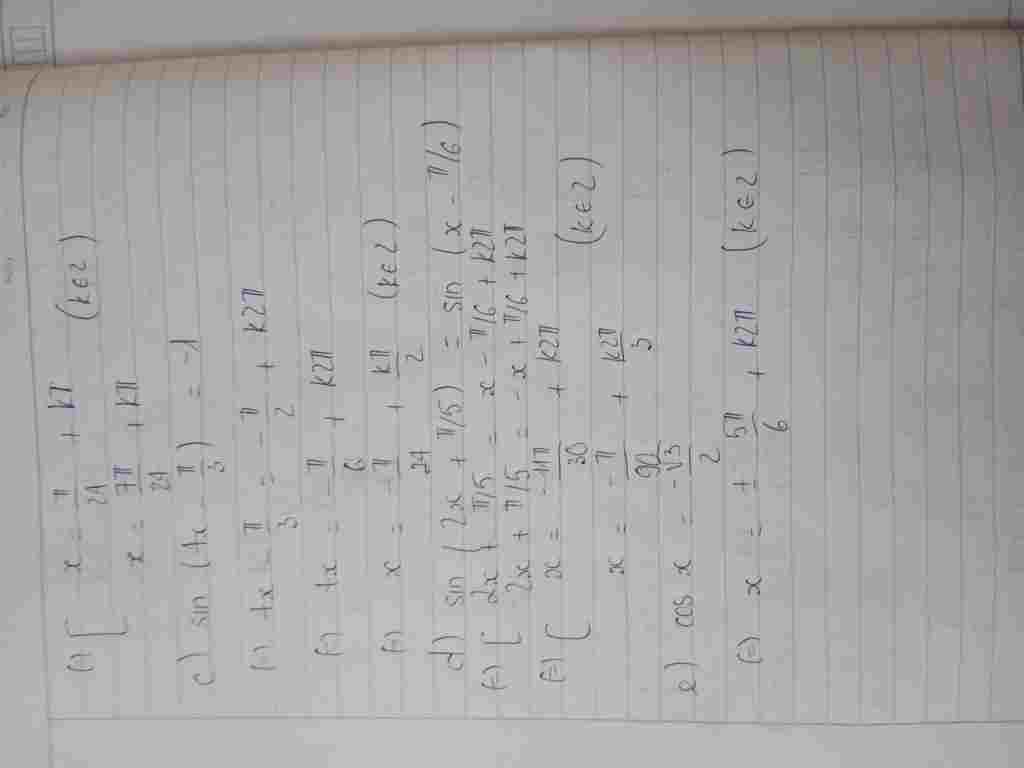 (=) [ x = π/24 + kπ (k∈Z)
x = 7π/24 + kπ
c) sin (4x - π/3) = -1
(=) 4x - π/3 = -π/2 + k2π
(=) 4x = -π/6 + k2π
(=) x = -π/24 + kπ/2 (k∈Z)
d) sin (2x + π/5) = sin (x - π/6)
(=) [ 2x + π/5 = x - π/6 + k2π
2x + π/5 = -x + π/6 + k2π
(=) [ x = -11π/30 + k2π (k∈Z)
x = -π/90 + k2π/3
e) cos x = -√3/2
(=) x = ± 5π/6 + k2π (k∈Z)